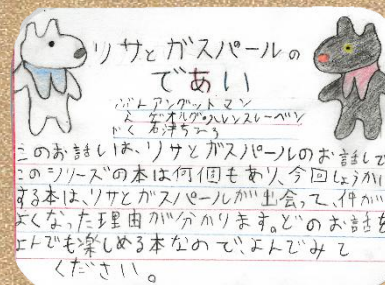 リサとガスパールの
であい
ぶん アングットマン
え ゲオルグ・ハレンスレーベン
やく 石津ちひろ
このお話しは、リサとガスパールのお話しで
このシリーズの本は何個もあり、今回しょうかい
する本は、リサとガスパールが出会って、仲が
よくなった理由が分かります。どのお話を
よんでも楽しめる本なので、よんでみて
ください。